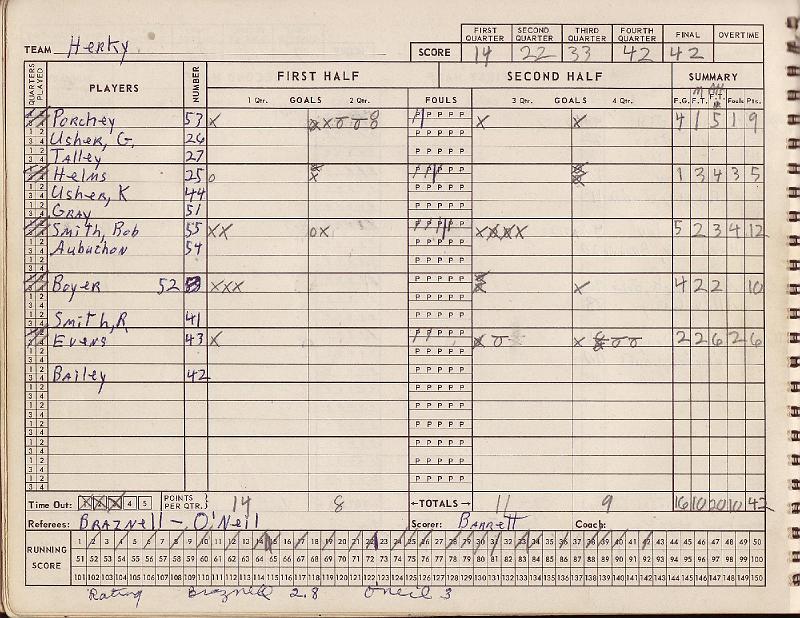 TEAM Herky
FIRST QUARTER SECOND QUARTER THIRD QUARTER FOURTH QUARTER FINAL OVERTIME
SCORE 14 22 33 42 42
QUARTERS PLAYED PLAYERS NUMBER FIRST HALF SECOND HALF SUMMARY
1 Qtr. GOALS 2 Qtr. FOULS 3 Qtr. GOALS 4 Qtr. F.G. F.T. Fouls Pts.
Porchey 53 X P P P P P X X 4 1 5 1 9
Usher, G. 26
Talley 27
Helms 25 o 1 3 4 3 5
Usher, K 44
GRAY 51
Smith, Rob 55 XX OX XXXX 5 2 3 4 12
Aubuchon 54
Boyer 52 XXX X 4 2 2 10
Smith, R 41
Evens 43 X 2 2 6 2 6
Bailey 42
Time Out: 1 2 3 4 5 POINTS PER QTR. 14 8 ←TOTALS→ 11 9 16 10 20 10 42
Referees: BRAZNell - O'Neil Scorer: BARRett Coach:
RUNNING SCORE
1 2 3 4 5 6 7 8 9 10 11 12 13 14 15 16 17 18 19 20 21 22 23 24 25 26 27 28 29 30 31 32 33 34 35 36 37 38 39 40 41 42 43 44 45 46 47 48 49 50
51 52 53 54 55 56 57 58 59 60 61 62 63 64 65 66 67 68 69 70 71 72 73 74 75 76 77 78 79 80 81 82 83 84 85 86 87 88 89 90 91 92 93 94 95 96 97 98 99 100
101 102 103 104 105 106 107 108 109 110 111 112 113 114 115 116 117 118 119 120 121 122 123 124 125 126 127 128 129 130 131 132 133 134 135 136 137 138 139 140 141 142 143 144 145 146 147 148 149 150
Rating Braznell 2.8 O'neil 3